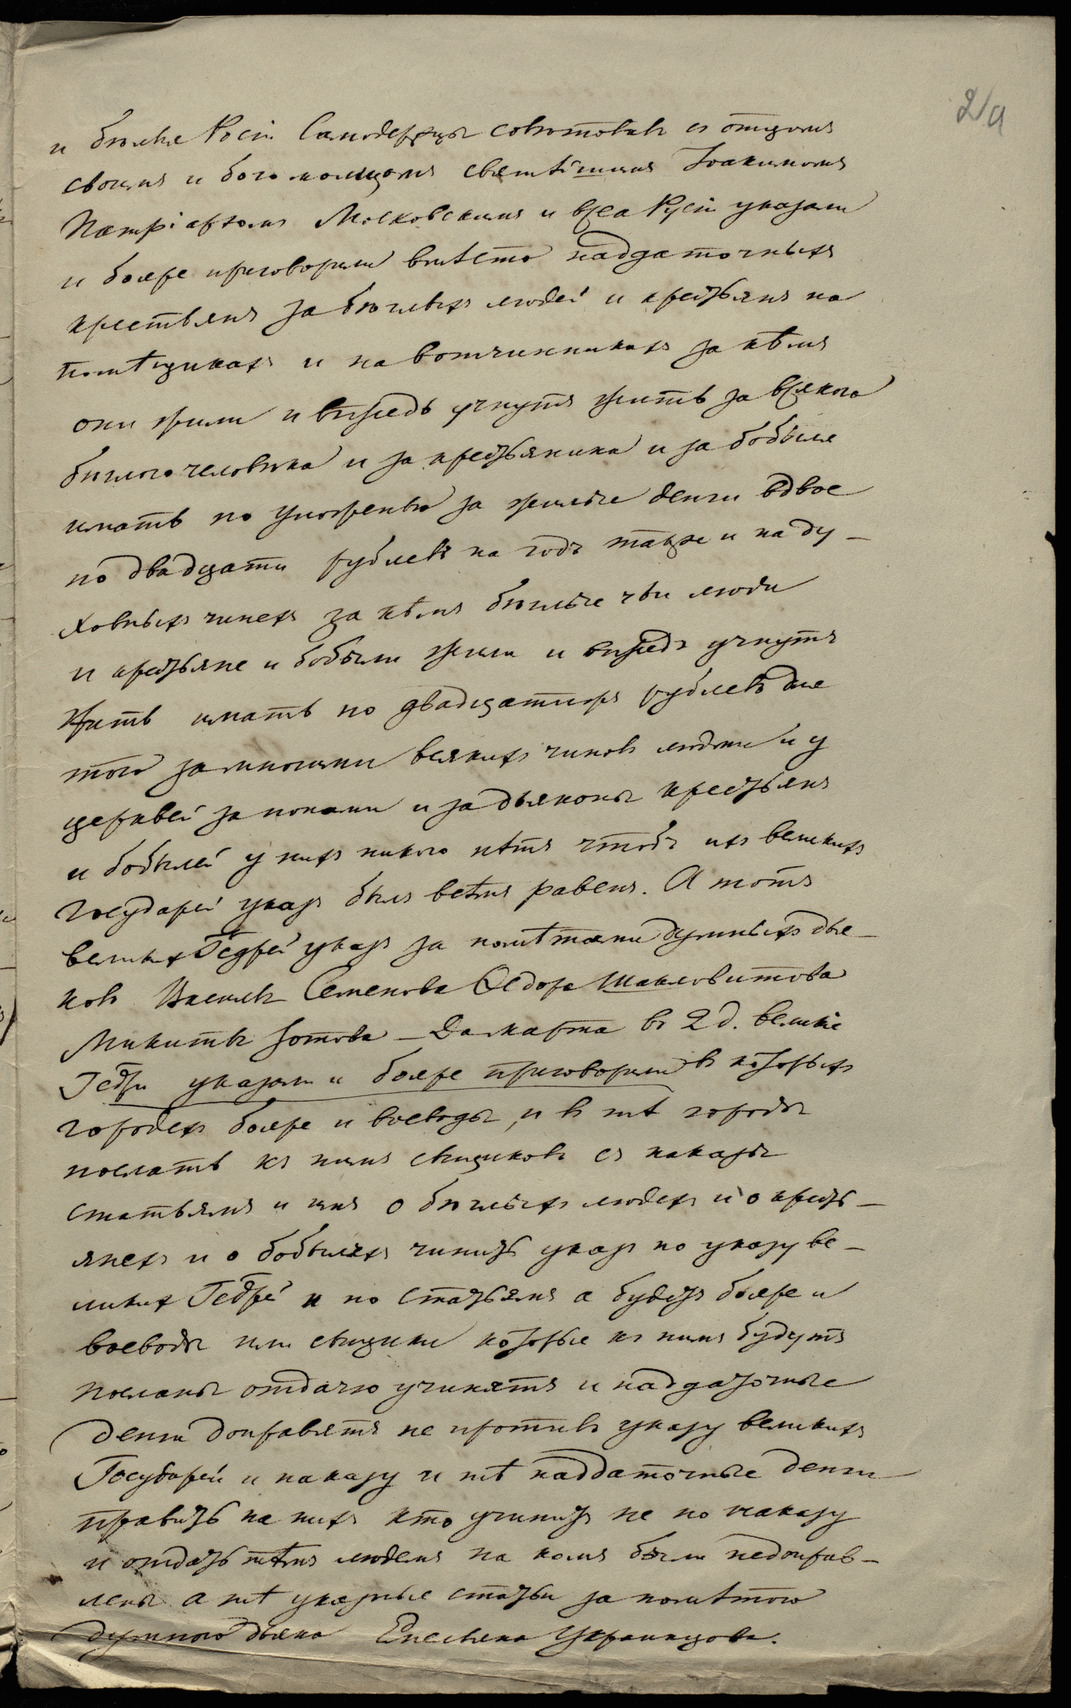 2/а
и бѣлыя Росіи Самодержцы совѣтовавъ со отцомъ
своимъ и богомольцомъ святѣйшимъ Іоакимомъ
Патріархомъ Московскимъ и всеа Русіи указали
и бояре приговорили вмѣсто наддаточныхъ
крестьянъ за бѣглыхъ людей и крестьянъ на
помѣщикахъ и на вотчинникахъ за кѣмъ
они жили и впредь учнутъ жить за всякого
бѣглого человѣка и за крестьянина и за бобыля
имать по уложенью за жилые денги вдвое
по двадцати рублевъ на годъ также и на ду-
ховныхъ чинехъ за кѣмъ бѣглые чьи люди
и крестьяне и бобыли жили и впредь учнутъ
жить имать по двадцатижъ рублевъ для
того за многими всякихъ чиновъ людми и у
церквей за попами и за дьяконы крестьянъ
и бобылей у нихъ никого нѣтъ чтобъ ихъ великихъ
государей указъ былъ всѣмъ равенъ. А тотъ
великихъ Гсдрей указъ за помѣтами думныхъ дья-
ковъ Василья Семенова Ѳедора Шакловитова
Микиты Зотова – Да марта въ 2 д. великіе
Гсдри указали и бояре приговорили въ которыхъ
городехъ бояре и воеводы, и в тѣ городы
послать къ нимъ сыщиковъ съ наказы
статьями и имъ о бѣглыхъ людехъ и о кресть-
янехъ и о бобыляхъ чинить указъ по указу ве-
ликихъ Гсдрей и по статьямъ а будетъ бояре и
воеводы или сыщики которые къ нимъ будутъ
посланы отдачю учинятъ и наддаточные
денги доправятъ не противъ указу великихъ
Государей и наказу и тѣ наддаточные денги
править на нихъ кто учинитъ не по наказу
и отдать тѣмъ людемъ на комъ были недоправ-
лены а тѣ указные статьи за помѣтою
думного дьяка Емельяна Украинцова.